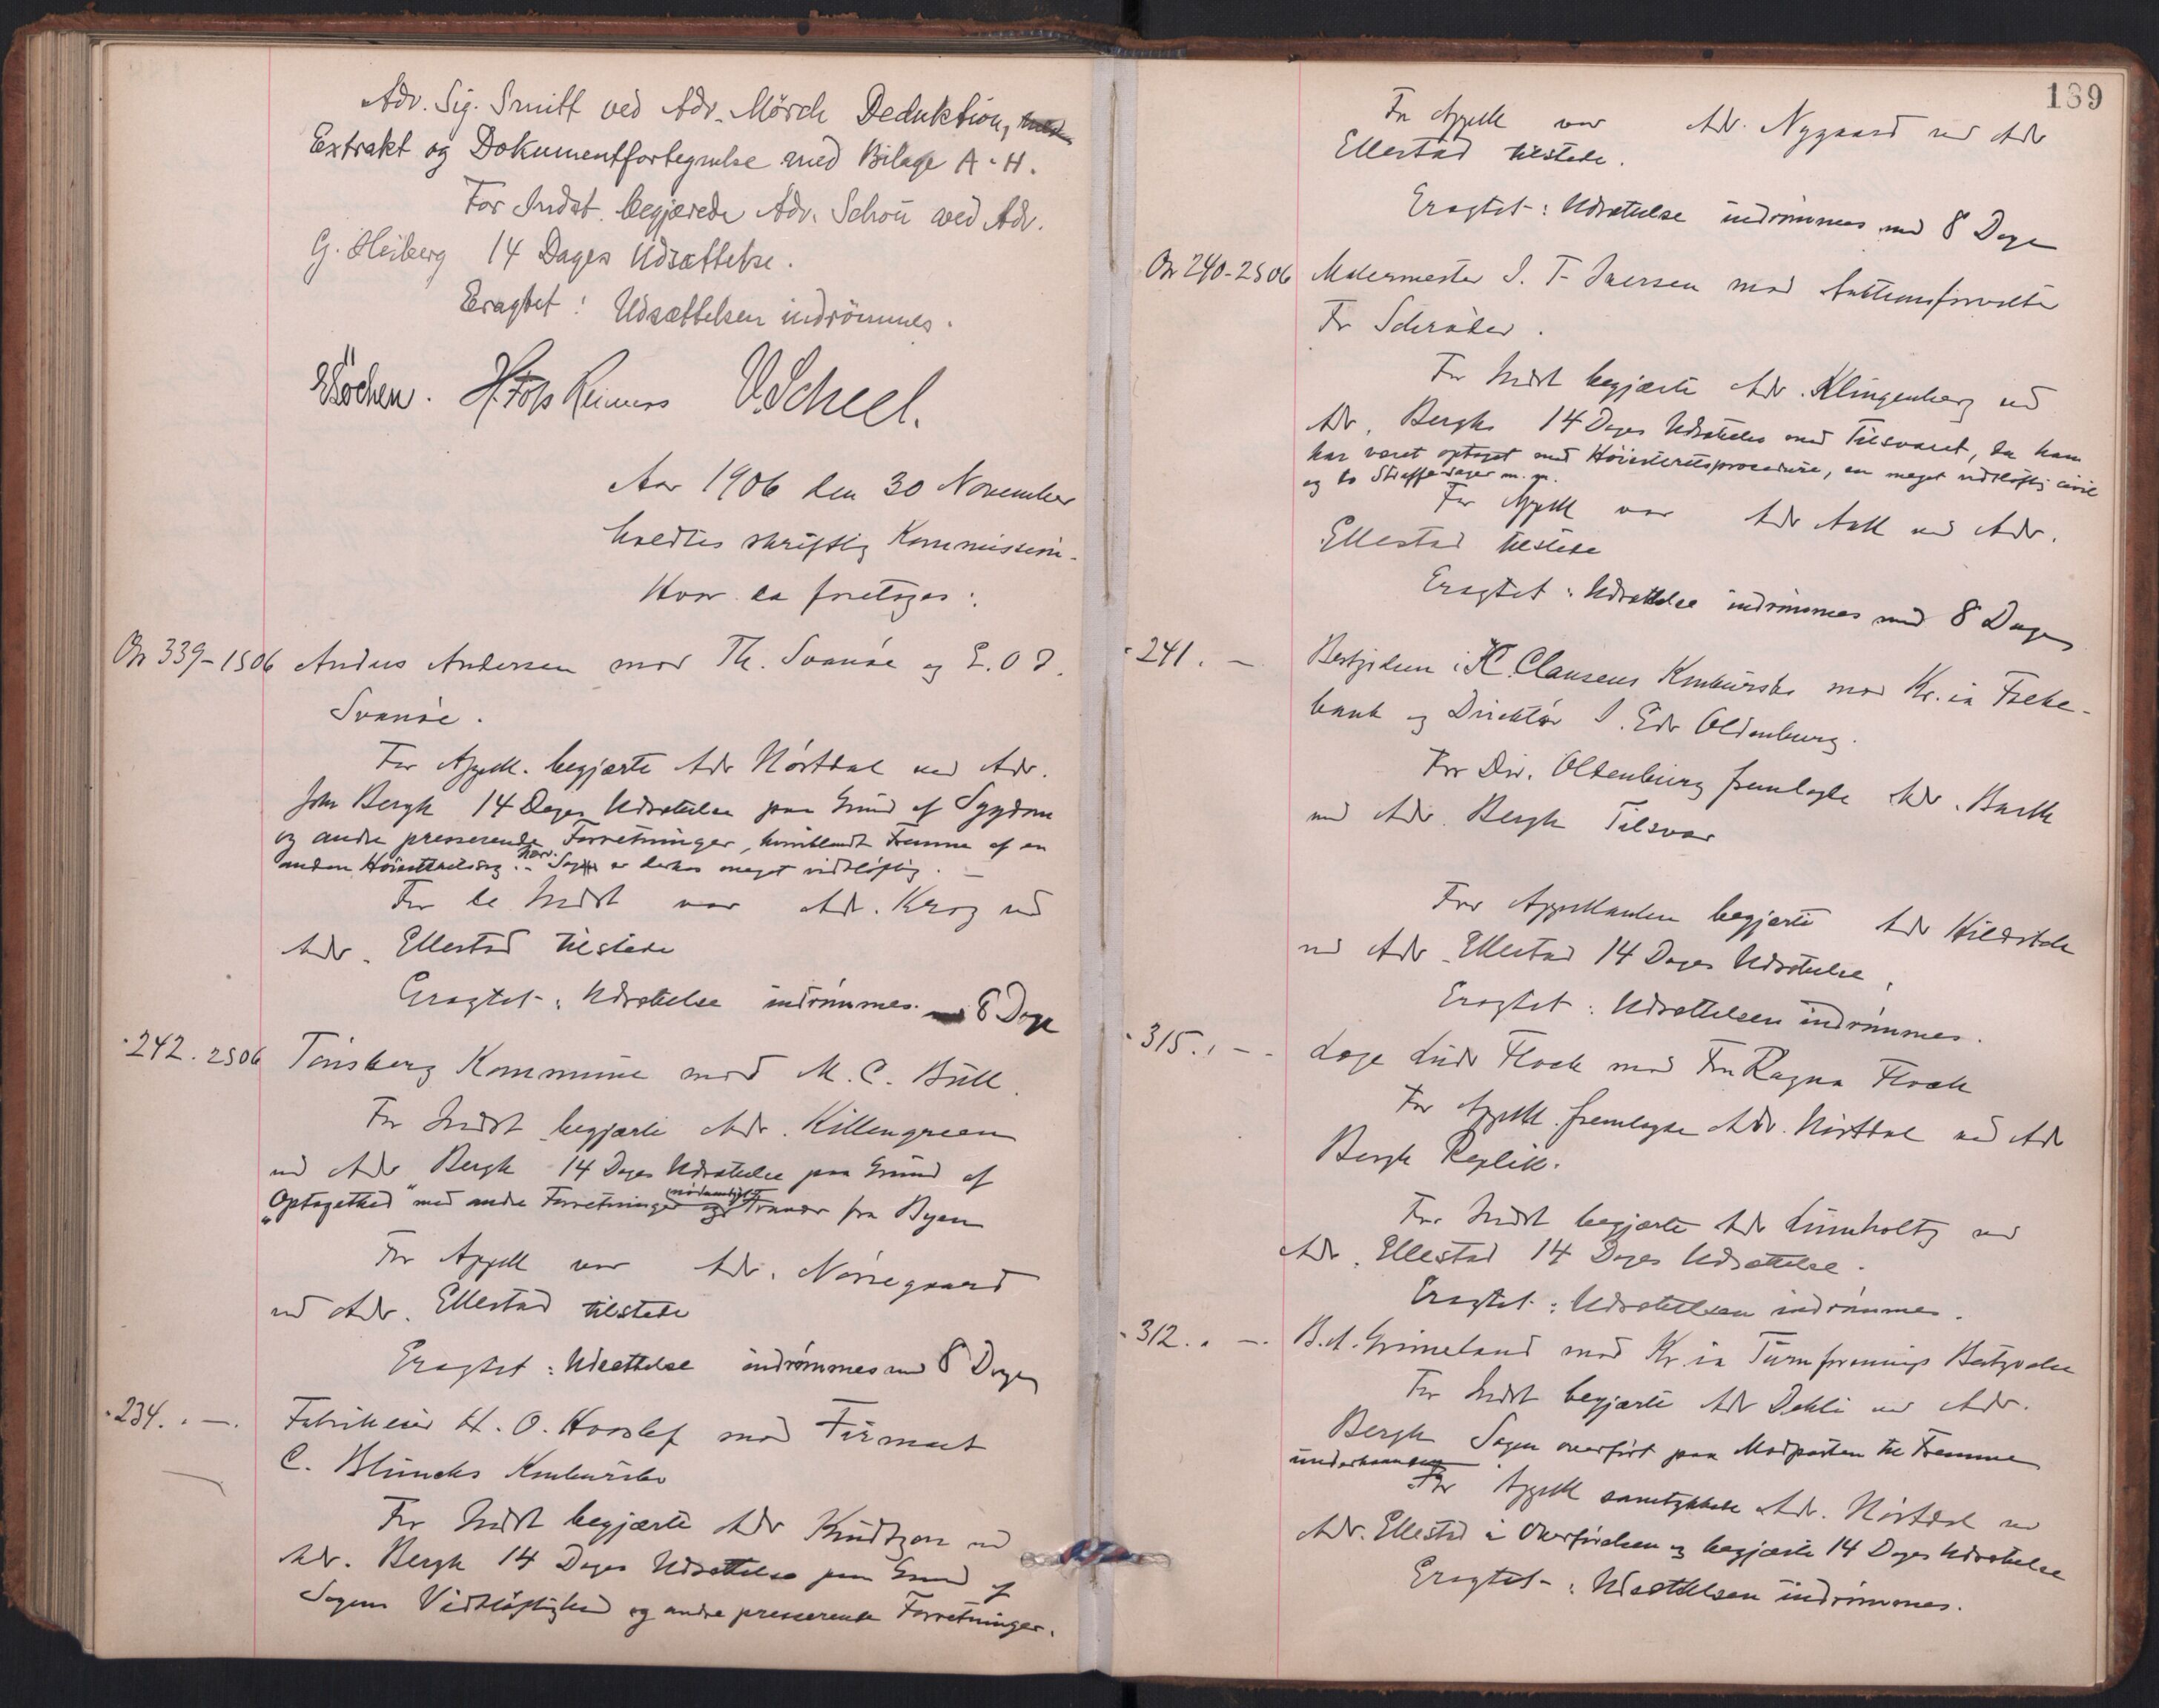 Adv. Sig. Smitt ved Adv. Mörch Deduktion, med
Extrakt og Dokumentfortegnelse med Bilage A-H.
For Indst. begjærede Adv. Schou ved Adv.
G. Heiberg 14 Dages Udsættelse.
Eragtet: Udsættelsen indrömmes.
V. Scheel.
Aar 1906 den 30 November
holdtes skriftlig Kommission.
Hvor da foretoges:
No 339-1S06 Andreas Andersen mod Th. Svanöe og E.O.
Svanöe.
For Appell. begjærte Adv Hörstdal ved Adv.
John Bergh 14 Dages Udsættelse paa Grund af Sygdom
og andre presserende Forretninger, hvoriblandt Fremme af en
anden Höiesteretssag. nærv. Sag er derhos meget vidtlöftig. -
For de Indst var Adv. Krog ved
Adv. Ellestad tilstede
Eragtet: Udsættelse indrömmes med 8 Dage
- 242. 2S06 Tönsberg Kommune mod M. C. Bull.
For Indst begjærte Adv. Killengreen
ved Adv Bergh 14 Dages Udsættelse paa Grund af
"Optagethed" med andre Forretninger og nödvendigt Fravær fra Byen
For Appell var Adv. Nörregaard
ved Adv. Ellestad tilstede
Eragtet: Udsættelse indrömmes med 8 Dage
- 234. . -. Fabrikeier H. O. Hooslef mod Firmaet
C. Blunchs Konkursbo
For Indst begjærte Adv Knudtzon ved
Adv. Bergh 14 Dages Udsættelse paa Grund af
Sagens Vidtlöftighed og andre presserende Forretninger.
189
For Appell var Adv. Nygaard ved Adv
Ellestad tilstede.
Eragtet: Udsættelse indrömmes med 8 Dage
No 240-2S06 Malermester I. T. Iversen mod Auktionsforvalter
Fr Schröder.
For Indst begjærte Adv. Klingenberg ved
Adv. Bergh 14 Dages Udsættelse med Tilsvaret, da han
har været optaget med Höiesteretsprocedure, en meget vidtlöftig civil
og to Straffesager m. m.
For Appell var Adv Aall ved Adv.
Ellestad tilstede
Eragtet: Udsættelse indrömmes med 8 Dage
- 241. - Bestyrelsen i K. Clausens Konkursbo mod Kr.ia Folke-
bank og Direktör I. Edv Oldenburg.
For Dir. Oldenburg fremlagde Adv. Barth
ved Adv. Bergh Tilsvar
For Appellanten begjærte Adv Hilditch
ved Adv. Ellestad 14 Dages Udsættelse,
Eragtet: Udsættelsen indrömmes.
- 315. , - - Lage Lude Flock mod Fru Ragna Flock
For Appell. fremlagde Adv. Hörstdal ved Adv
Bergh Replik.
For Indst begjærte Adv Lumholtz ved
Adv. Ellestad 14 Dages Udsættelse.
Eragtet: Udsættelsen indrömmes.
- 312. . -. B. A. Grimeland mod Kr.ia Turnforenings Bestyrelse
For Indst begjærte Adv Dehli ved Adv.
Bergh Sagen overfört paa Modparten til Fremme
underhaanden
For Appell samtykkede Adv. Hörstdal ved
Adv. Ellestad i Overförelsen og begjærte 14 Dages Udsættelse
Eragtet: Udsættelsen indrömmes.